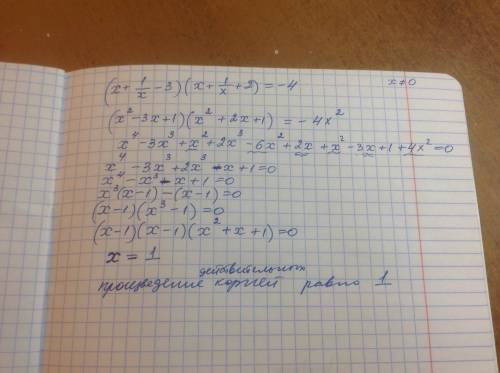 (x + 1/x - 3)(x + 1/x + 2) = -4 x ≠ 0
(x² - 3x + 1)(x² + 2x + 1) = -4x²
x⁴ - 3x³ + x² + 2x³ - 6x² + 2x + x² - 3x + 1 + 4x² = 0
x⁴ - 3x³ + 2x³ - x + 1 = 0
x⁴ - x³ - x + 1 = 0
x³(x - 1) - (x - 1) = 0
(x - 1)(x³ - 1) = 0
(x - 1)(x - 1)(x² + x + 1) = 0
x = 1
произведение действительных корней равно 1